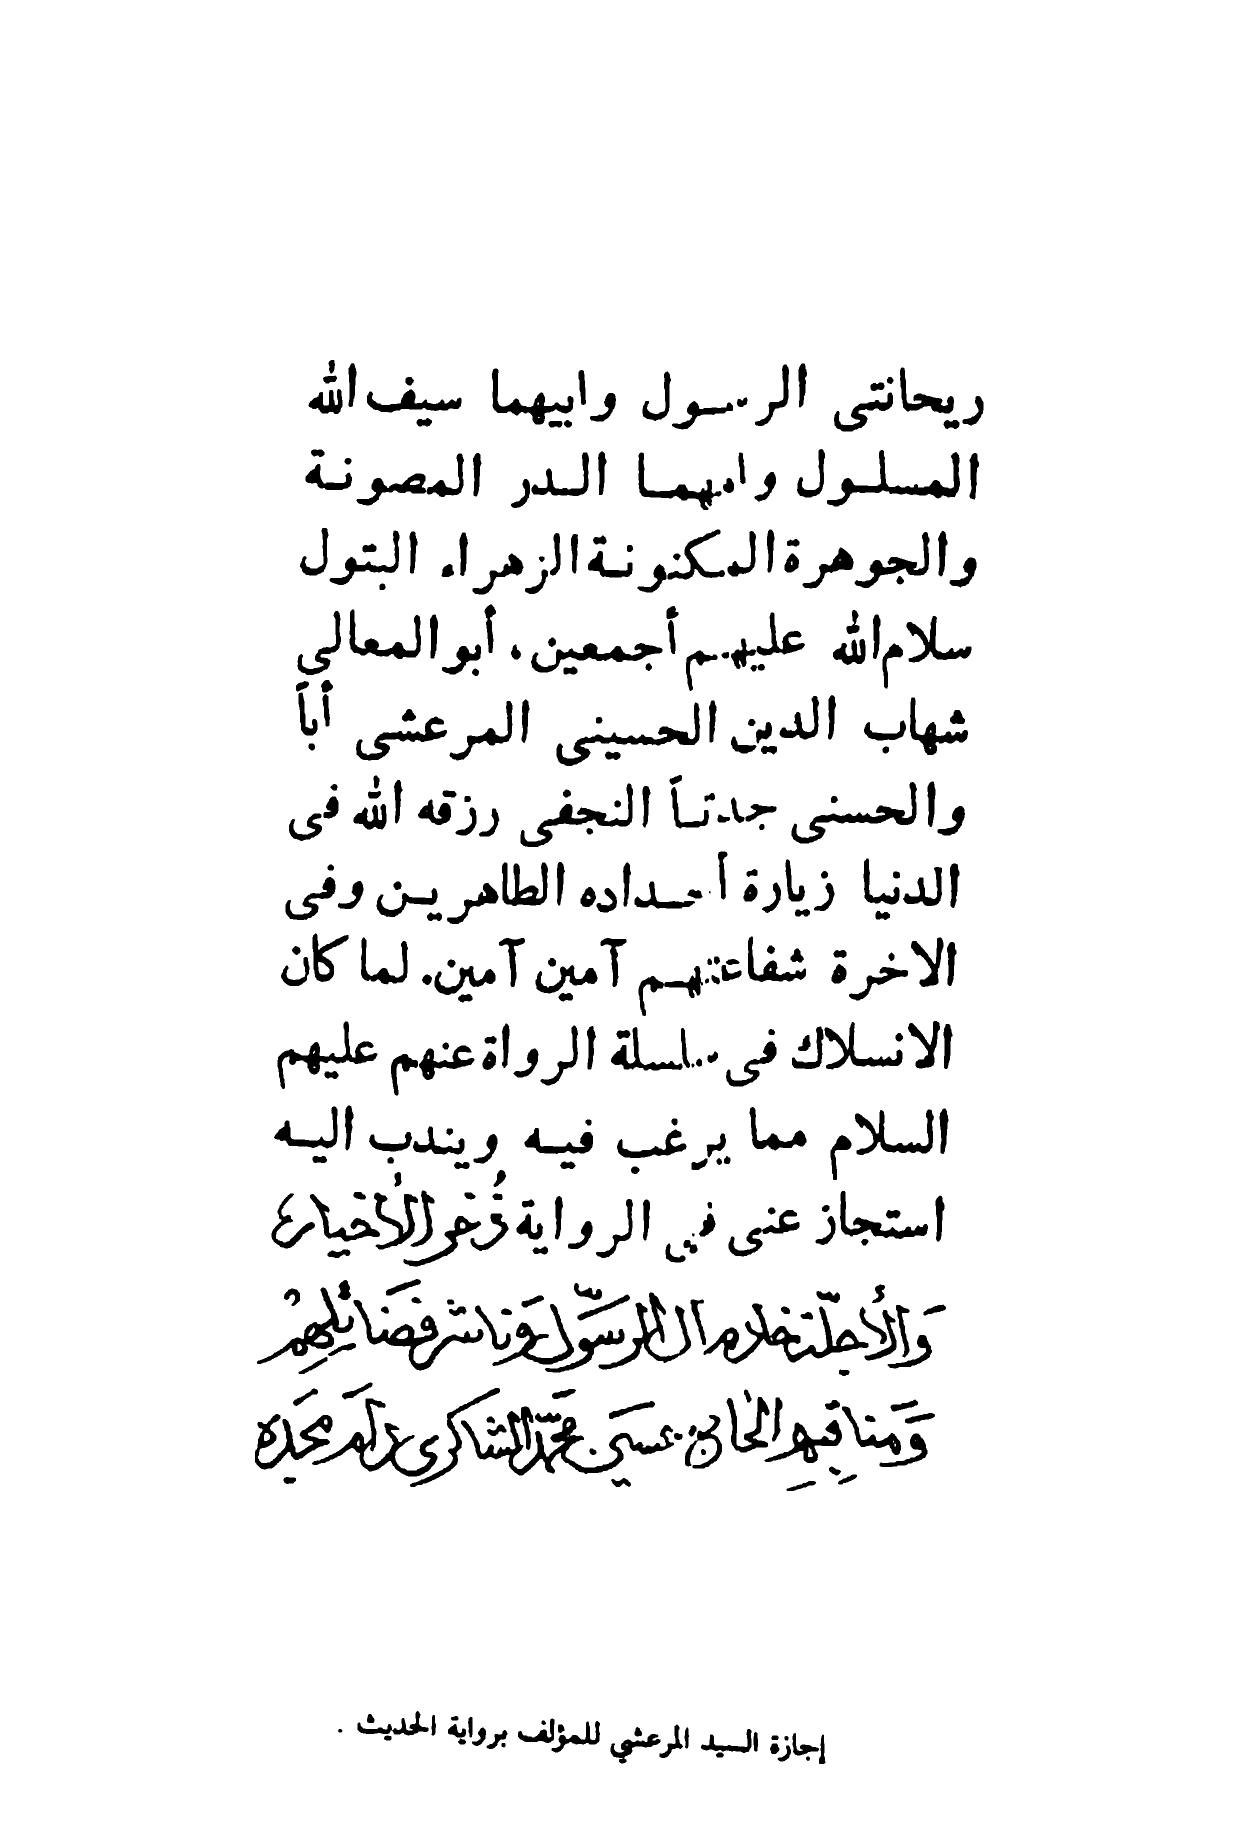 ريحانتى الرسول وابيهما سيف الله
المسلول وامهما الدر المصونة
والجوهرة المكنونة الزهراء البتول
سلام الله عليهم أجمعين ، أبو المعالى
شهاب الدين الحسينى المرعشى أباً
والحسنى جدتاً النجفى رزقه الله فى
الدنيا زيارة أجداده الطاهرين وفى
الاخرة شفاعتهم آمين آمين. لما كان
الانسلاك فى سلسلة الرواة عنهم عليهم
السلام مما يرغب فيه ويندب اليه
استجاز عنى فى الرواية ذُخر الأخيار
وَالأجلّة خادم آل الرسّول وَناشر فضَائلِهِمْ
وَمناقبهِم الحاج حسين محمّد الشاكرى دام مجَده
إجازة السيد المرعشي للمؤلف برواية الحديث .